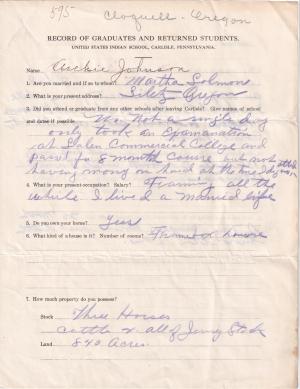 595
Cloquell - Oregon
RECORD OF GRADUATES AND RETURNED STUDENTS.
UNITED STATES INDIAN SCHOOL, CARLISLE, PENNSYLVANIA.
Name Archie Johnson
1. Are you married and if so to whom? Martha Selmon
2. What is your present address? Siletz Oregon
3. Did you attend or graduate from any other schools after leaving Carlisle? Give names of school
and dates if possible. No. Not a single day
only took an Examanation
at Salem Commercial College and
passed for 8 month Course but not
having mony on hand at the time I
4. What is your present occupation? Salary? Farming all the
while I lived a married life
5. Do you own your home? Yess
6. What kind of a house is it? Number of rooms? Framed house
7. How much property do you possess?
Stock Three Horses
cattle & all of Jersey Stock
Land 840 Acres.